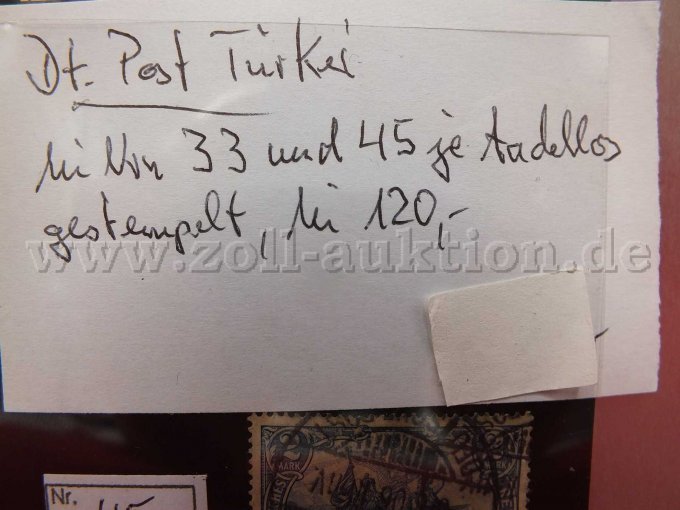 Dt. Post Türkei
Mi Nrn 33 und 45 je tadellos
gestempelt, Mi 120,-
www.zoll-auktion.de
2 MARK
2 MARK
Nr. 45